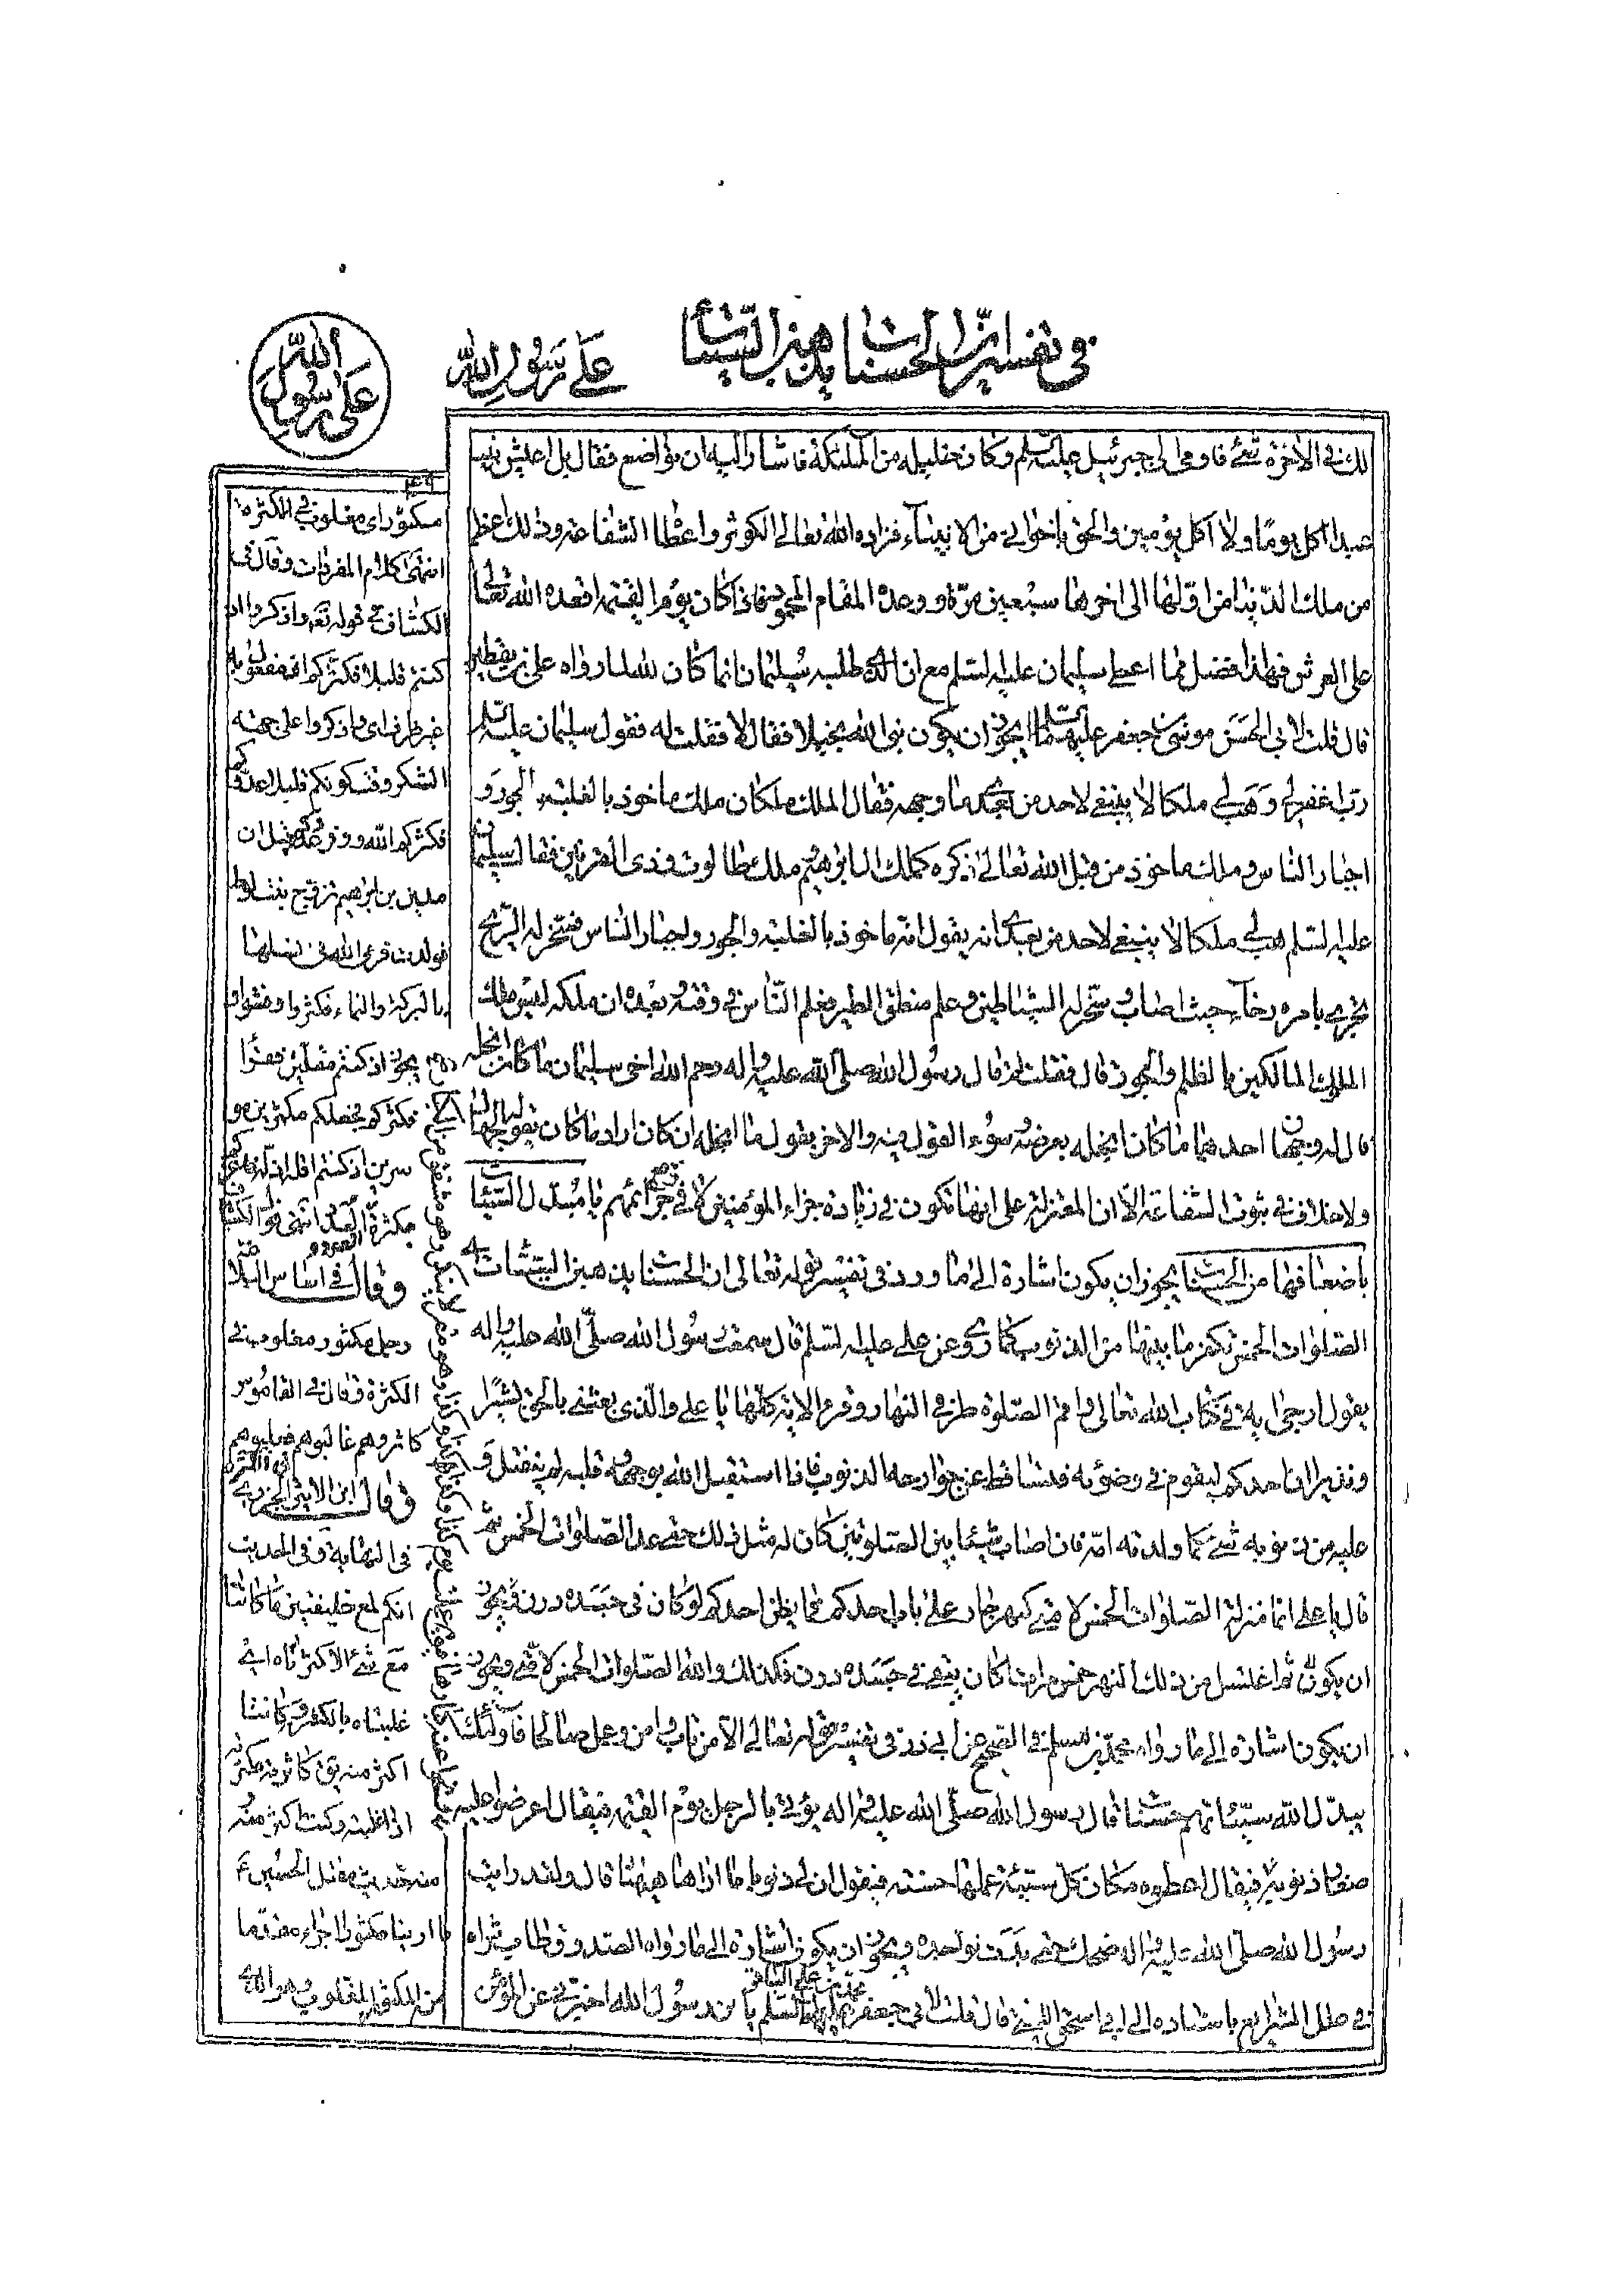 في تفسير ان الحسنات يذهبن السيئات
على رسول الله
الله على رسول
لك في الاخرة شئ فاومى الى جبرئيل عليه السلم وكان خليله من الملئكة فاشار اليه ان تواضع فقال بل اعيش نبيا
عبدا اكل يوما ولا اكل يومين والحق باخوانى من الانبياء فزاده الله تعالى الكوثر واعطا الشفاعة وذلك اعظم
من ملك الدنيا من اولها الى اخرها سبعين مرة ووعده المقام المحمود فاذا كان يوم القيمة اقعده الله تعالى
على العرش فهذا افضل مما اعطى سليمان عليه السلم مع ان الملك طلبه سليمان انما كان لله لما رواه على بن يقطين
قال قلت لابى الحسن موسى بن جعفر عليهما السلم ايجوز ان يكون نبى الله بخيلا فقال لا فقلت له فقول سليمان عليه السلم
رب اغفر لى وهب لى ملكا لا ينبغى لاحد من بعدى ما وجهه فقال الملك ملكان ملك ماخوذ بالغلبة والجور و
اجبار الناس وملك ماخوذ من قبل الله تعالى ذكره كملك ال ابرهيم وملك طالوت وذى القرنين فقال سليمان
عليه السلم هب لى ملكا لا ينبغى لاحد من بعدى انه يقول انه ماخوذ بالغلبة والجور واجبار الناس فسخر له الريح
تجرى بامره رخاء حيث اصاب وسخر له الشياطين وعلم منطق الطير فعلم الناس فى وقته وبعده ان ملكه ليس ملك
الملوك المالكين بالظلم والجور قال فقلت له قال رسول الله صلى الله عليه واله رحم الله اخى سليمان ما كان ابخله
قال له وجهان احدهما ما كان ابخله بعرضه وسوء القول فيه والاخر يقول ما ابخله ان كان اراد ما كان يقول الجهال
ولا خلاف فى ثبوت الشفاعة الا ان المعتزلة على انها تكون فى زيادة جزاء المؤمنين لا فى جرائمهم يا مبدل السيئات
باضعافها من الحسنات يجوز ان يكون اشارة الى ما ورد فى تفسير قوله تعالى ان الحسنات يذهبن السيئات
الصلوات الخمس تكفر ما بينها من الذنوب كما روى عن على عليه السلم قال سمعت رسول الله صلى الله عليه واله
يقول ارجى اية فى كتاب الله تعالى واقم الصلوة طرفى النهار وقرء الاية كلها يا على والذى بعثنى بالحق بشيرا
ونذيرا ان احدكم ليقوم فى وضوئه فتساقط عن جوارحه الذنوب فاذا استقبل الله بوجهه وقلبه لم ينفتل و
عليه من ذنوبه شئ كما ولدته امه فان اصاب شيئا بين الصلوتين كان له مثل ذلك حتى عد الصلوات الخمس ثم
قال يا على انما منزلة الصلوات الخمس لامتى كنهر جار على باب احدكم فما يظن احدكم لو كان فى جسده درن
ان يكون ثم اغتسل من ذلك النهر خمس مرات اكان يبقى فى جسده درن فكذلك والله الصلوات الخمس لامتى ويجوز
ان يكون اشارة الى ما رواه محمد بن مسلم فى الصحيح عن ابى ذر فى تفسير قوله تعالى الا من تاب وامن وعمل صالحا فاولئك
يبدل الله سيئاتهم حسنات قال رسول الله صلى الله عليه واله يؤتى بالرجل يوم القيمة فيقال اعرضوا عليه
صغار ذنوبه فيقال اعطوه مكان كل سيئة عملها حسنة فيقول ان لى ذنوبا ما اراها هيهنا قال ولقد رايت
رسول الله صلى الله عليه واله ضحك حتى بدت نواجده ويجوز ان يكون اشارة الى ما رواه الصدوق طاب ثراه
فى علل الشرايع باسناده الى ابى اسحق الليثى قال قلت لابى جعفر محمد بن على الباقر عليهما السلم يا بن رسول الله اخبرنى عن المؤمن
مكثور اى مغلوب فى الكثرة
انتهى كلام المفردات وقال فى
الكشاف فى قوله تعه واذكروا اذ
كنتم قليلا فكثركم اذ مفعول به
غير ظرف اى واذكروا على جهة
الشكر وقت كونكم قليلا عددكم
فكثركم الله ووفر عددكم قيل ان
مدين بن ابرهيم تزوج بنت لوط
فولدت فرمى الله فى نسلها
بالبركة والنماء فكثروا وفشوا و
يجوز اذ كنتم مقلين فقراء
فكثركم فجعلكم مكثرين مو
سرين اذ كنتم اقلة اذلة فاعزكم
بكثرة العدد انتهى قول الكشاف
وقال فى اساس البلاغة
رجل مكثور مغلوب فى
الكثرة وقال فى القاموس
كاثروهم غالبوهم فغلبوهم
فى الكثرة
وقال ابن الاثير الجزرى
فى النهاية وفى الحديث
انكم لمع خليقتين ما كانتا
مع شئ الا كثرتاه اى
غلبتاه بالكثرة وكانتا
اكثر منه يق كاثرته فكثرته
اذا غلبته وكنت اكثر منه
منه حديث مقتل الحسين ع
ما راينا مكثورا اجراء مقدما
من المكثور المغلوب وهو الذى